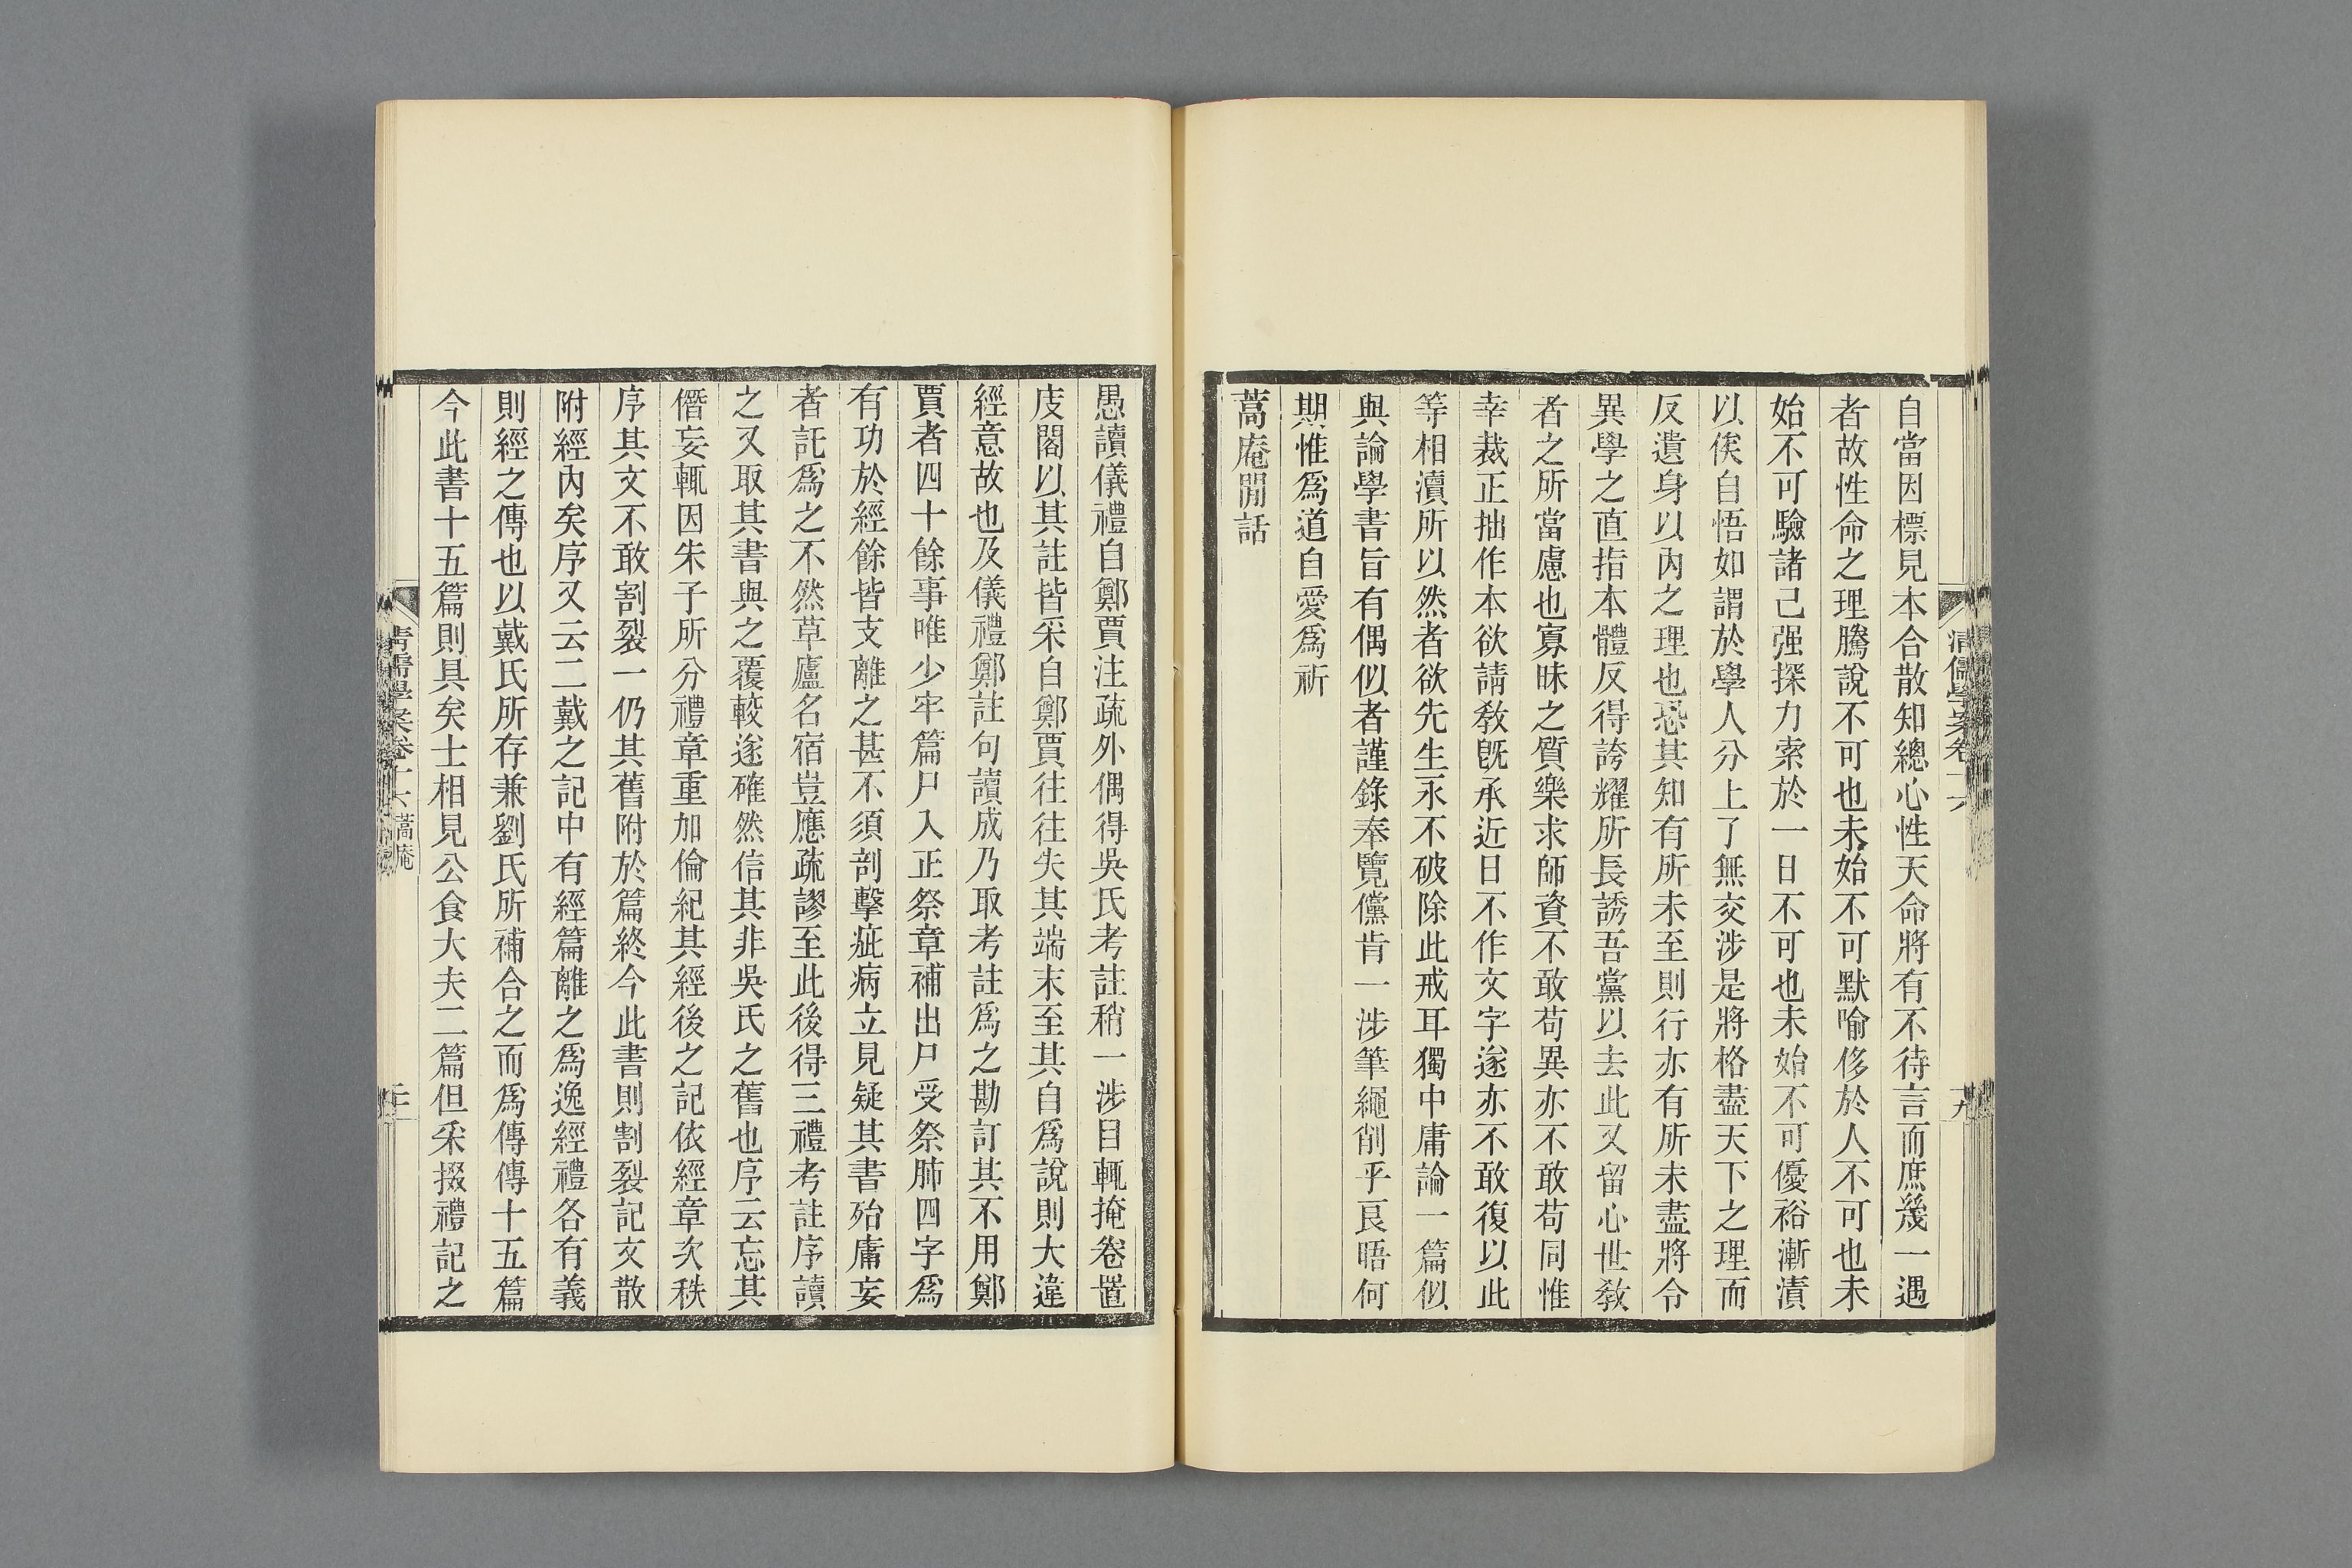 自當因標見本合散知總心性天命將有不待言而庶幾一遇
者故性命之理騰說不可也未始不可默喻侈於人不可也未
始不可驗諸己强探力索於一日不可也未始不可優裕漸漬
以俟自悟如謂於學人分上了無交涉是將格盡天下之理而
反遺身以內之理也恐其知有所未至則行亦有所未盡將令
異學之直指本體反得誇耀所長誘吾黨以去此又留心世敎
者之所當慮也寡昧之質樂求師資不敢苟異亦不敢苟同惟
幸裁正拙作本欲請敎旣承近日不作文字遂亦不敢復以此
等相瀆所以然者欲先生永不破除此戒耳獨中庸論一篇似
與論學書旨有偶似者謹錄奉覽儻肯一涉筆繩削乎良晤何
期惟爲道自愛爲祈
蒿庵閒話
清儒學案卷十六
十九
愚讀儀禮自鄭賈注疏外偶得吳氏考註稍一涉目輒掩卷置
庋閣以其註皆采自鄭賈往往失其端末至其自爲說則大違
經意故也及儀禮鄭註句讀成乃取考註爲之勘訂其不用鄭
賈者四十餘事唯少牢篇尸入正祭章補出尸受祭肺四字爲
有功於經餘皆支離之甚不須剖擊疵病立見疑其書殆庸妄
者託爲之不然草廬名宿豈應疏謬至此後得三禮考註序讀
之又取其書與之覆較遂確然信其非吳氏之舊也序云忘其
僭妄輒因朱子所分禮章重加倫紀其經後之記依經章次秩
序其文不敢割裂一仍其舊附於篇終今此書則割裂記文散
附經內矣序又云二戴之記中有經篇離之爲逸經禮各有義
則經之傳也以戴氏所存兼劉氏所補合之而爲傳傳十五篇
今此書十五篇則具矣士相見公食大夫二篇但采掇禮記之
清儒學案卷十六 蒿庵
二十